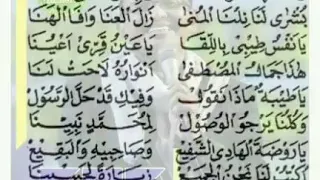 بُشْرَى لَنَا نِلْنَا الْمُنَى زَالَ الْعَنَا وَافَا الْهَنَا
يَانَفْسُ طِيْبِى بِاللِّقَا يَاعَيْنُ قَرِّى اَعْيُنَا
هٰذَا جَمَالُ الْمُصْطَفٰى اَنْوَارُهُ لَاحَتْ لَنَا
يَاطَيْبَةُ مَاذَا نَقُوْلُ وَفِيْكِ قَدْ حَلَّ الرَّسُوْلُ
وَكُلُّنَا يَرْجُو الْوُصُوْلَ لِمُحَمَّدٍ نَبِيِّنَا
يَارَوْضَةَ الْهَادِى الشَّفِيْعِ وَصَاحِبَيْهِ وَالْبَقِيْعِ
اُكْتُبْ لَنَا نَحْنُ الْجَمِيْعَ زِيَارَةً لِحَبِيْبِنَا